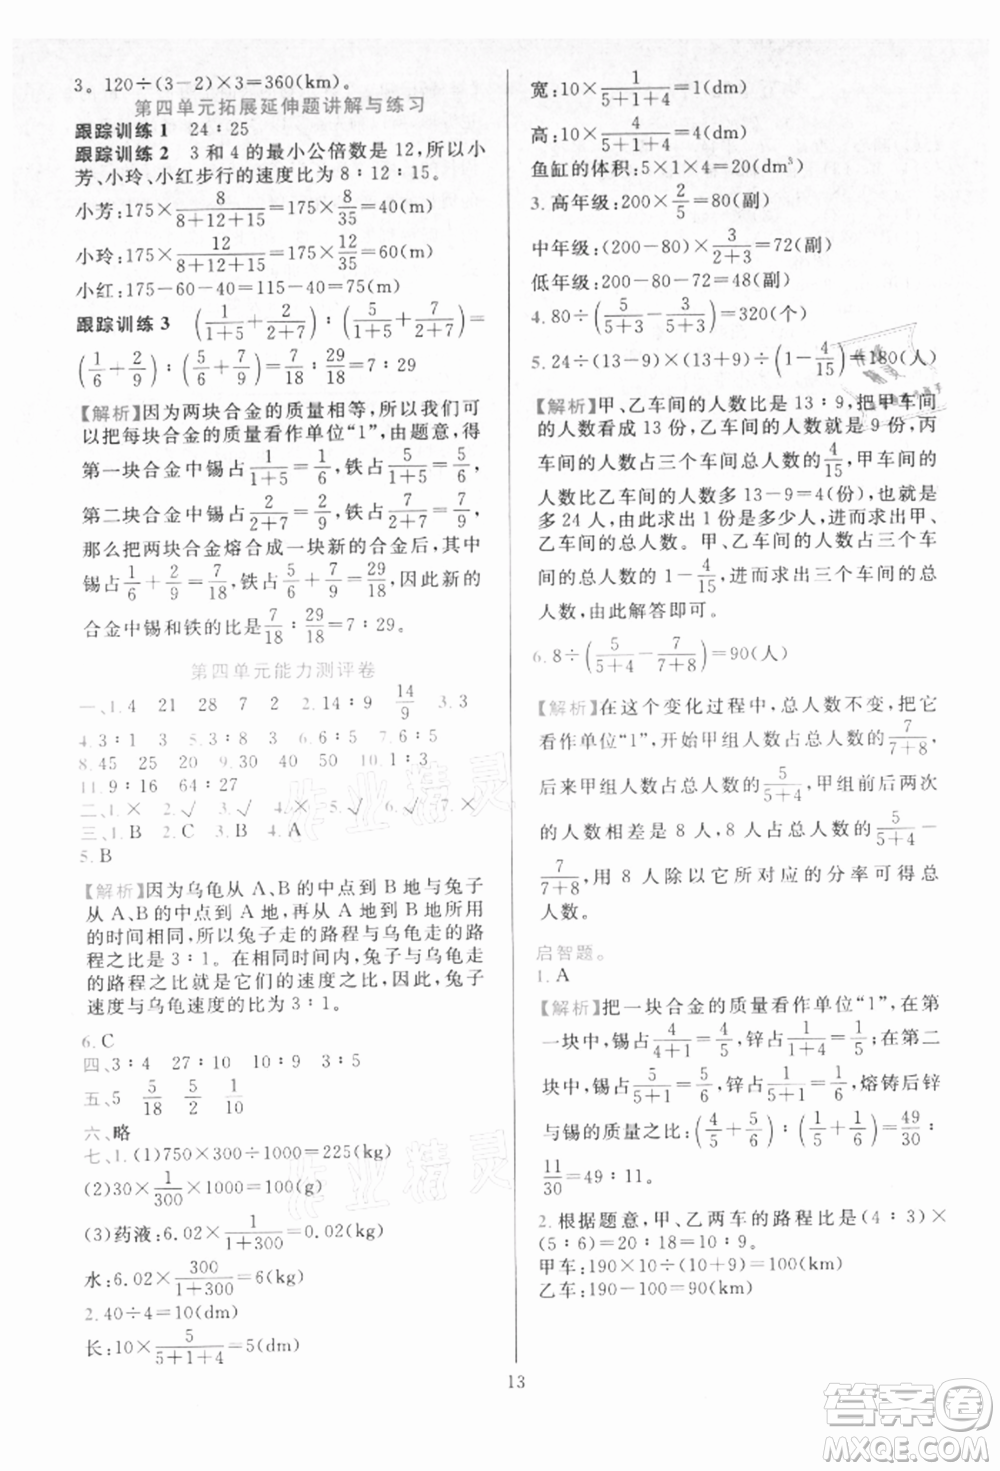 3。120÷(3-2)×3=360(km)。
第四单元拓展延伸题讲解与练习
跟踪训练1 24∶25
跟踪训练2 3和4的最小公倍数是12,所以小
芳、小玲、小红步行的速度比为8∶12∶15。
小芳:175×8/(8+12+15)=175×8/35=40(m)
小玲:175×12/(8+12+15)=175×12/35=60(m)
小红:175-60-40=115-40=75(m)
跟踪训练3 (1/(1+5)+2/(2+7))∶(5/(1+5)+7/(2+7))=
(1/6+2/9)∶(5/6+7/9)=7/18∶29/18=7∶29
【解析】因为两块合金的质量相等,所以我们可
以把每块合金的质量看作单位“1”,由题意,得
第一块合金中锡占1/(1+5)=1/6,铁占5/(1+5)=5/6,
第二块合金中锡占2/(2+7)=2/9,铁占7/(2+7)=7/9,
那么把两块合金熔合成一块新的合金后,其中
锡占1/6+2/9=7/18,铁占5/6+7/9=29/18,因此新的
合金中锡和铁的比是7/18∶29/18=7∶29。
第四单元能力测评卷
一、1.4 21 28 7 2.9 14/9 3.3
4.3∶1 5.1∶50 6.1∶2 7.6∶5
8.45 25 20 9.50 10.8 20
11.9∶16 27∶64
二、1.× 2.√ 3.√ 4.× 5.√ 6.×
三、1.B 2.B 3.C 4.A
5.B
【解析】因为乌龟从A、B的中点到B地与兔子
从A、B的中点到A地,再到A、B的中点所用
的时间相同,所以兔子走的路程与乌龟走的路
程之比是3∶1。因此,兔子与乌龟在相同时间
走的路程比就是它们的速度之比,兔子
速度与乌龟速度的比为3∶1。
6.C
四、3∶4 27∶10 10∶9 3∶5
五、5 5/18 5/2 1/10
六、略
七、1.(1)750×300÷1000=225(kg)
(2)30×1/300×1000=100(g)
(3)药液:6.02×1/(1+300)=0.02(kg)
水:6.02×300/(1+300)=6(kg)
2.40÷4=10(dm)
长:10×5/(5+1+4)=5(dm)
宽:10×1/(5+1+4)=1(dm)
高:10×4/(5+1+4)=4(dm)
鱼缸的体积:5×1×4=20(dm³)
3.高年级:200×2/5=80(副)
中年级:(200-80)×3/(2+3)=72(副)
低年级:200-80-72=48(副)
4.80÷(5/(5+3)-3/(5+3))=320(个)
5.24÷(13-9)×(13+9)÷(1-4/15)=180(人)
【解析】甲、乙车间的人数比是13∶9,把甲车间
的人数看成13份,乙车间的人数就是9份,丙
车间的人数占三个车间总人数的4/15,甲车间的
人数比乙车间的人数多13-9=4(份),这4份
多24人,由此求出1份是多少人,进而求出甲、
乙车间的总人数。甲、乙车间的人数占三个车
间总人数的1-4/15,进而求出三个车间的总
人数,由此解答即可。
6.8÷(5/(5+4)-7/(7+8))=90(人)
【解析】在这个变化过程中,总人数不变,把它
看作单位“1”,开始甲组人数占总人数的7/(7+8),
后来甲组人数占总人数的5/(5+4),甲组前后两次
的人数相差是8人,8人占总人数的5/(5+4)-
7/(7+8),用8人除以它所对应的分率可求出总
人数。
启智题。
1.A
【解析】把一块合金的质量看作单位“1”,在第
一块中,锡占4/(4+1)=4/5,锌占1/(4+1)=1/5,在第二
块中,锡占5/(5+1)=5/6,锌占1/(5+1)=1/6,熔铸后锌
与锡的质量之比:(4/5+5/6)∶(1/5+1/6)=49/30∶
11/30=49∶11。
2.根据题意,甲、乙两车的路程比是(4∶3)×
(5∶6)=20∶18=10∶9。
甲车:190×10÷(10+9)=100(km)
乙车:190-100=90(km)
13
作业精灵
作业精灵
答案圈
MXQE.COM